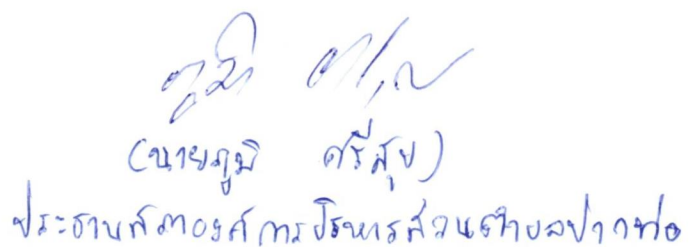 (นายภูมิ ศรีสุข)
ประธานสภาองค์การบริหารส่วนตำบลปากท่อ